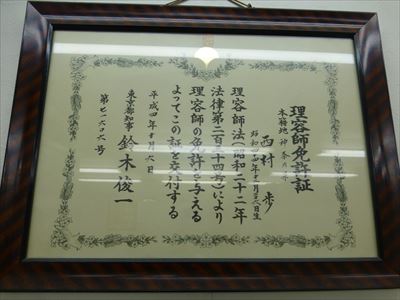 理容師免許証
本籍地 神奈川県
西村 歩
昭和四十年十月三日生
理容師法(昭和二十二年
法律第二百三十四号)により
理容師の免許を与える
よってこの証を交付する
平成四年十月六日
東京都知事 鈴木俊一
第七一六〇六号